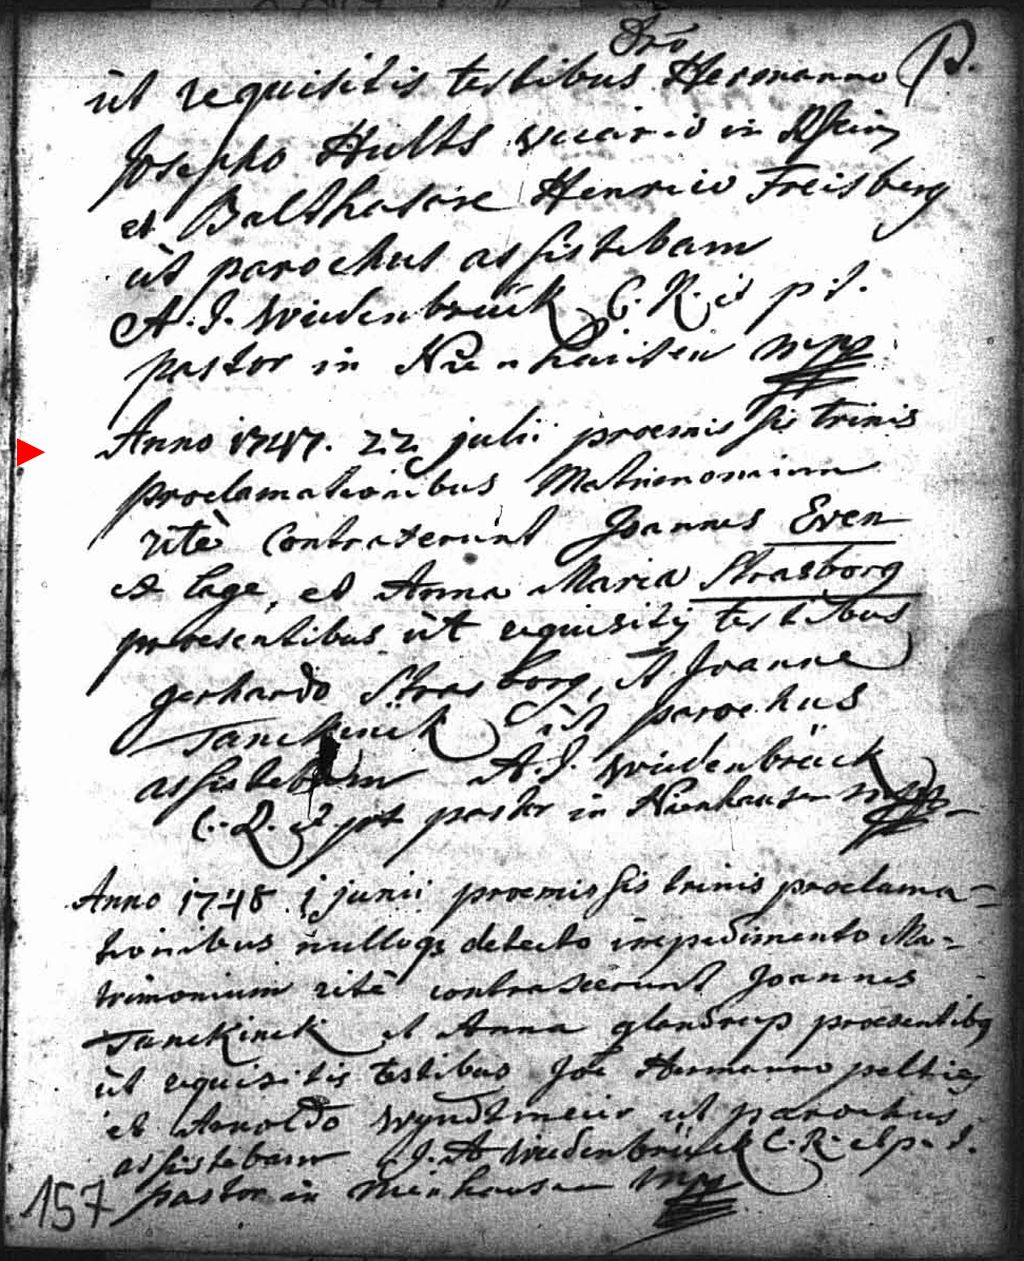 Dno
ut requisitis testibus Hermanno P.
Josepho Hults vicario in Rhein
et Balthasare Henrico Freisberg
ut parochus assistebam
A. J. Widenbrück C. R. et p. t.
pastor in Nienhausen mpp
Anno 1747. 22 julii praemissis trinis
proclamationibus Matrimonium
ritè Contraxerunt Joannes Even
ex lage, et Anna Maria Strasborg
praesentibus ùt requisitis testibus
gerhardo Strasborg, et Joanne
Tanckinck ùt parochus
assistebam A. J. Widenbrück
C. R. et pt pastor in Nienhausen mpp
Anno 1748 1 junii praemissis trinis proclama=
tionibus nulloq detecto impedimento Ma=
trimonium ritè contraxerunt Joannes
Tanckinck et Anna glandrup praesentibq
ùt requisitis testibus Joe Hermanno
et Arnoldo Wyndtmeir ut parochus
assistebam J. A. Widenbrück C. R. et p. t.
pastor in Nienhausen mpp
157